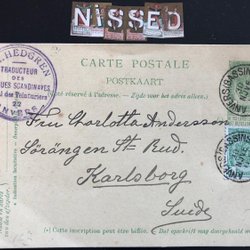 NISSED
CARTE POSTALE
POSTKAART
HEDGREN
TRADUCTEUR DES
SCANDINAVES
22
ANVERS
réservé à l'adresse. — Zijde voor het adres alleen.
Fru Charlotta Andersson
Sörängen St. Rud.
Karlsborg
Suède
(*) Cette inscription peut être biffée. — Dit opschrift mag doorgehaald